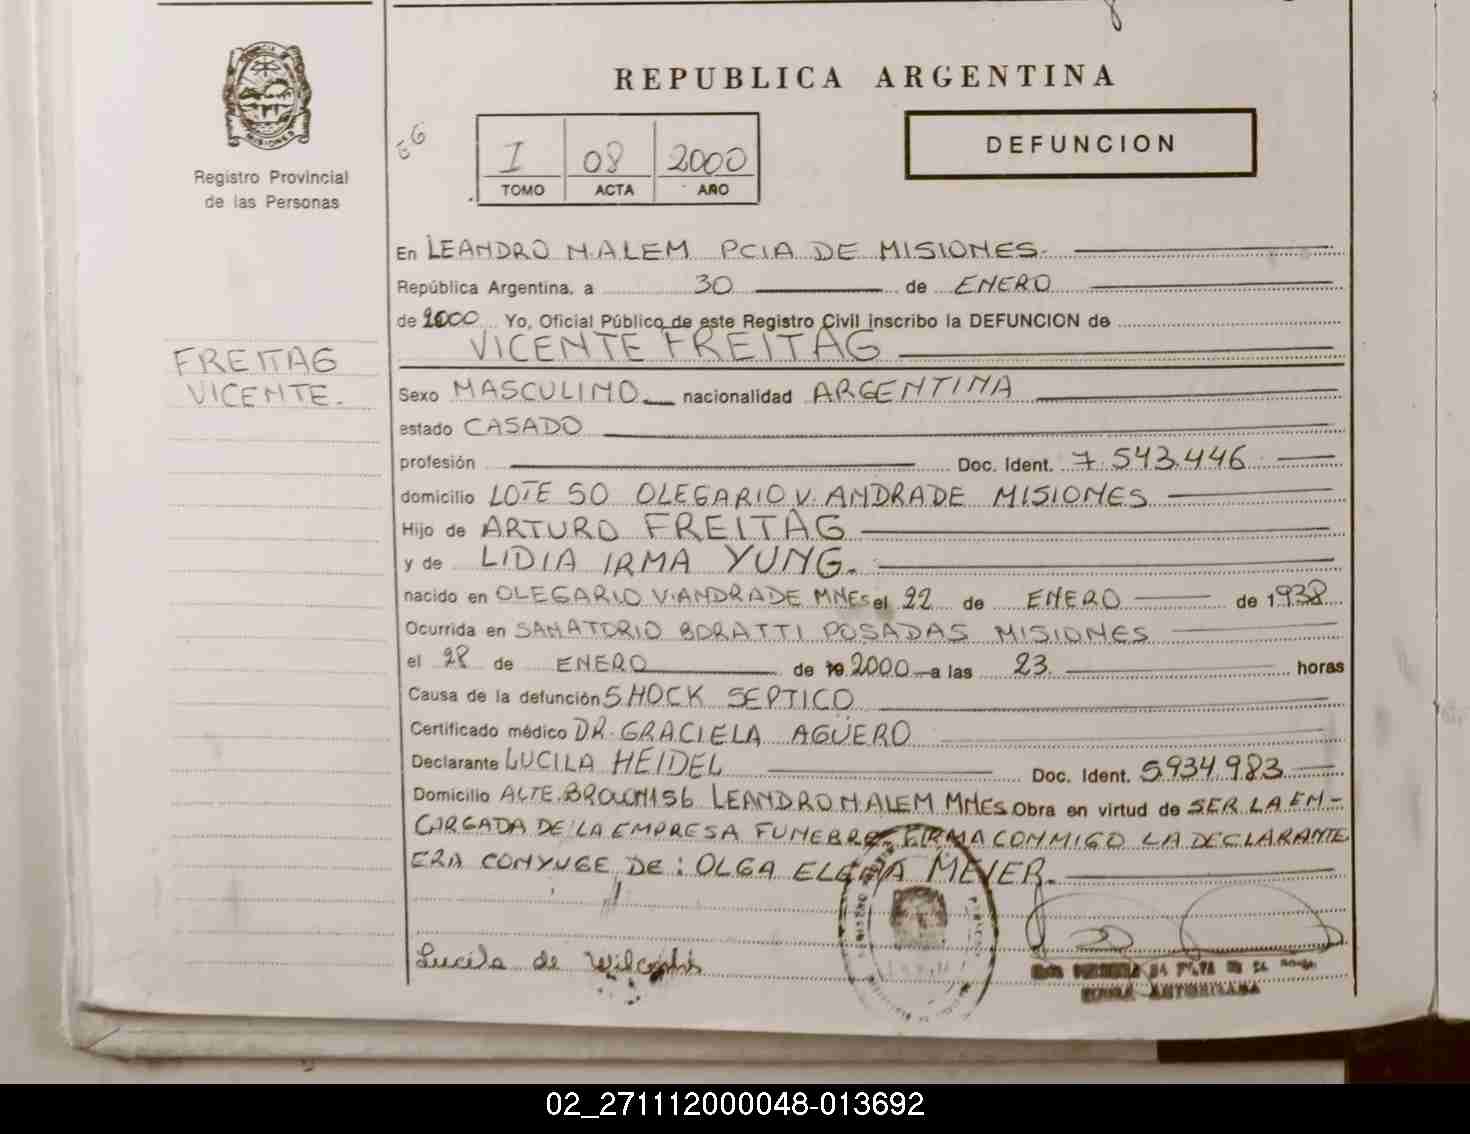 REPUBLICA ARGENTINA
MISIONES
Registro Provincial
de las Personas
I 08 2000
TOMO ACTA AÑO
DEFUNCION
En LEANDRO N. ALEM PCIA DE MISIONES.
República Argentina, a 30 de ENERO
de 2000 Yo, Oficial Público de este Registro Civil inscribo la DEFUNCION de
VICENTE FREITAG
FREITAG
VICENTE.
Sexo MASCULINO nacionalidad ARGENTINA
estado CASADO
profesión Doc. Ident. 7.543.446
domicilio LOTE 50 OLEGARIO V. ANDRADE MISIONES
Hijo de ARTURO FREITAG
y de LIDIA IRMA YUNG.
nacido en OLEGARIO V. ANDRADE MNES el 22 de ENERO de 1938
Ocurrida en SANATORIO BORATTI POSADAS MISIONES
el 28 de ENERO de 2000 a las 23 horas
Causa de la defunción SHOCK SEPTICO
Certificado médico DR. GRACIELA AGÜERO
Declarante LUCILA HEIDEL Doc. Ident. 5.934.983
Domicilio ALTE. BROWN 156 LEANDRO N ALEM MNES Obra en virtud de SER LA EN-
CARGADA DE LA EMPRESA FUNEBRE FIRMA CONMIGO LA DECLARANTE
ERA CONYUGE DE: OLGA ELENA MEIER.
Lucila de
02_271112000048-013692